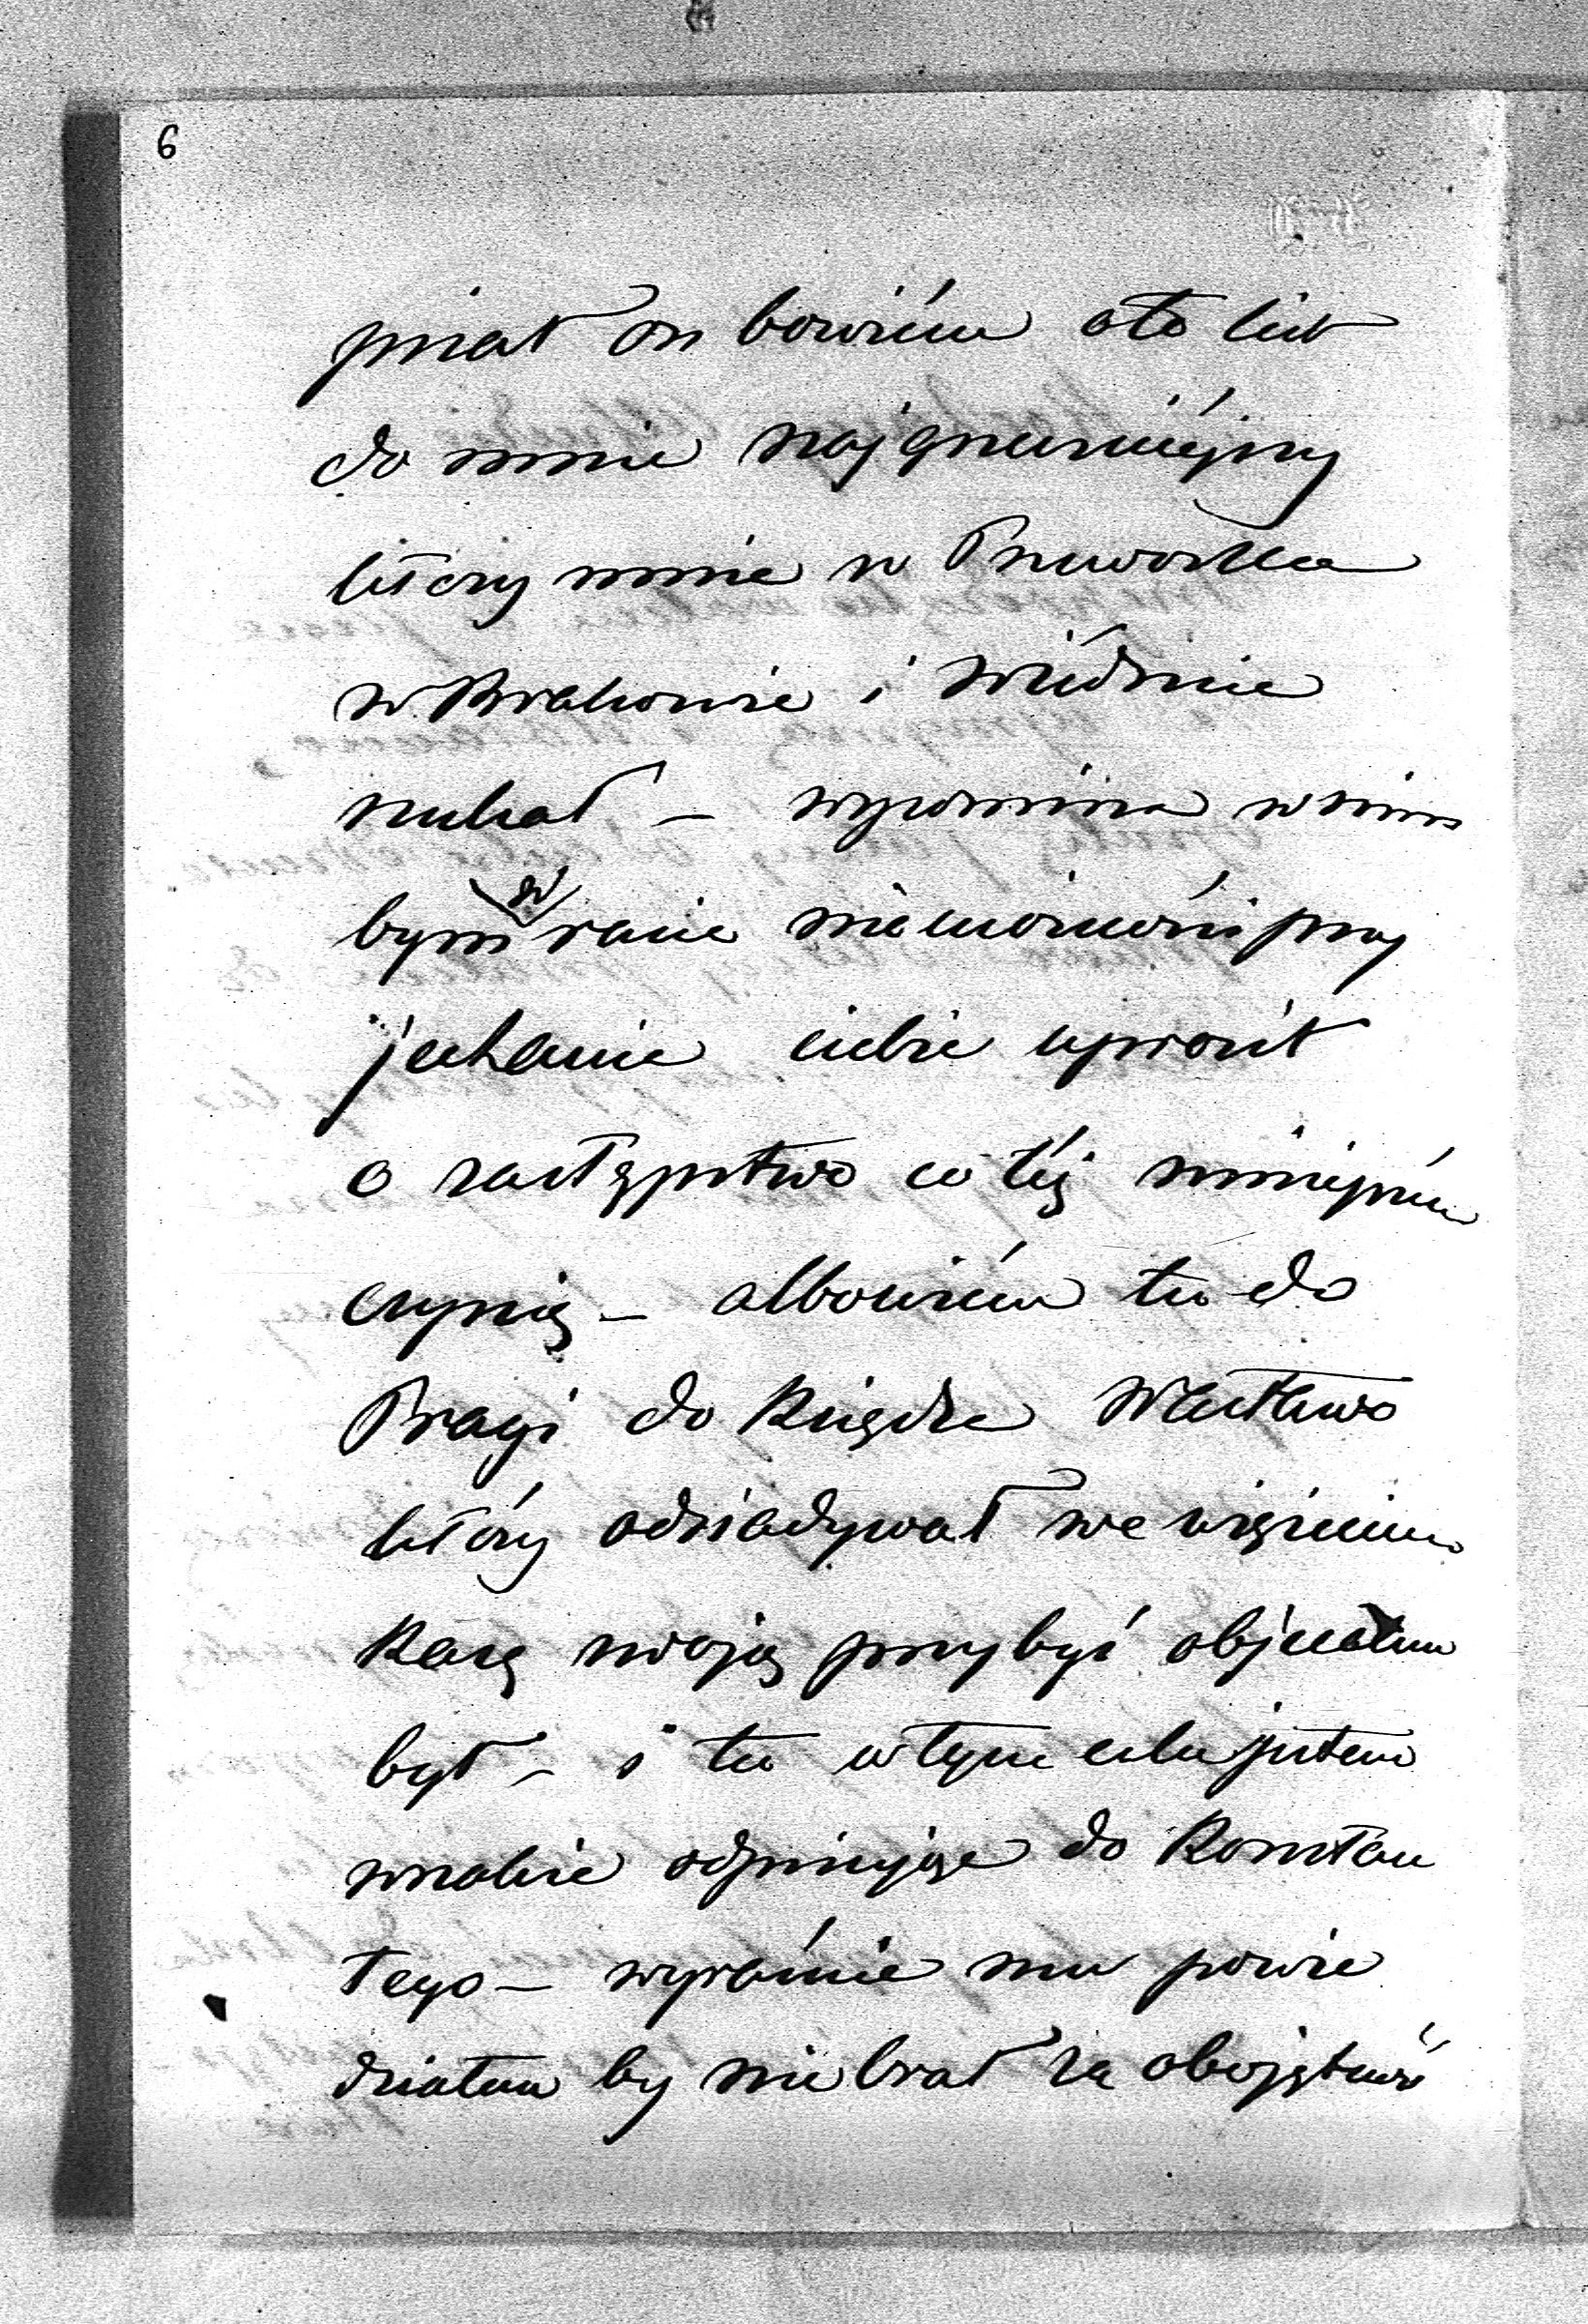 6
pisał on bowiém oto list
do mnie najgrzeczniéjszy
który mnie w Przeworsku
w Krakowie i Wiédniu
szukał – wspomina w nim
bym w razie niemożności przy
jechania ciebie uprosił
o zastępstwo co téż niniejszém
czynię – albowiém tu do
Pragi do Księdza Wacława
który odsiadywał swe więzienie
Karę swoją przybyć objecałem
był – i tu w tym celu jestem
wszakże odpisując do Konstan
tego – wyraźnie mu powie
działem by nie brał za obojętność